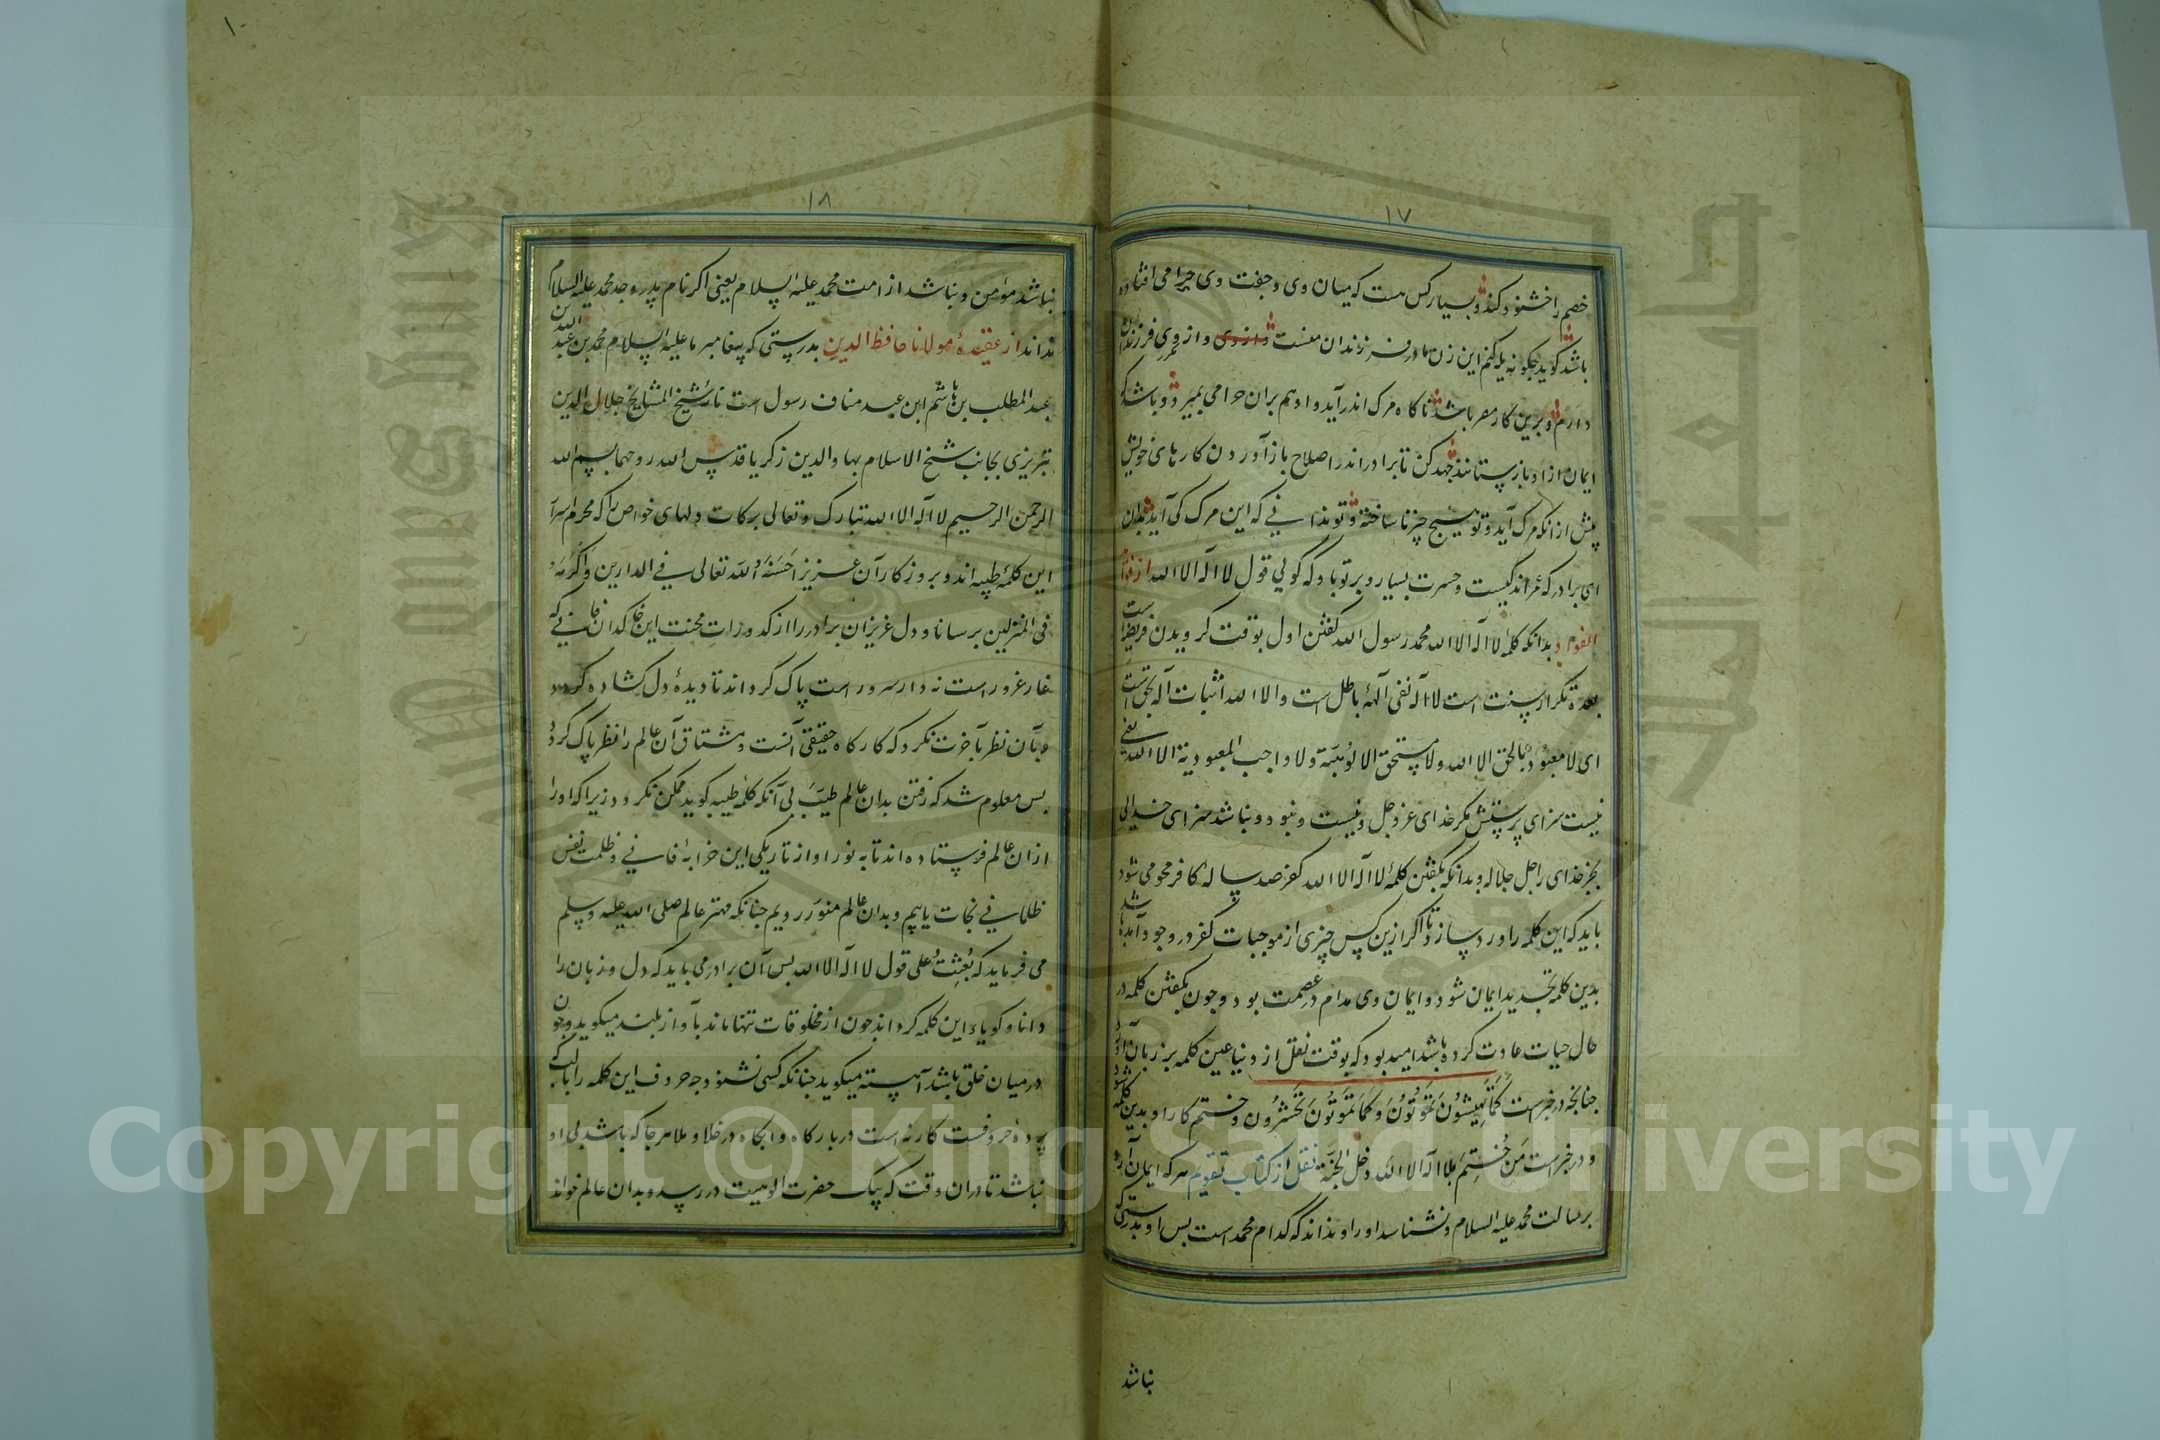 ۱۷
خصم را خشنود کند و بسیار کس هست که میان وی و جفت وی حرامی افتاده
باشد کوید چکونه یله کنم این زن مادر فرزندان منست و از وی فرزندان
دارم و برین کار مصر باشد تا ناکاه مرک اندر آید و او هم بران حرامی بمیرد و باشد که
ایمان از او باز ستانند جهد کن تا برادر اندر اصلاح باز آوردن کارهای خویش
پیش از انکه مرک آید و تو هیچ چیز ناساخته و تو ندانی که این مرک کی آید بدان
ای برادر که عمر اندکیست و حسرت بسیار و بر تو باد که کوئی قول لا اله الا الله
بدانکه کلمهٔ لا اله الا الله محمد رسول الله کفتن اول بوقت کرویدن فریضه است
بعده تکرار سنت است لا اله نفی آلههٔ باطل است و الا الله اثبات اله بحق است
ای لا معبود بالحق الا الله ولا مستحق الالوهیته ولا واجب المعبودیة الا الله یعنی
نیست سزای پرستش مکر خدای عز وجل و نیست و نبود و نباشد سزای خدائی
بجز خدای را جل جلاله و بدانکه بکفتن کلمهٔ لا اله الا الله کفر صد ساله کافر محو می شود
باید که این کلمه را ورد سازد تا اکر ازین پس چیزی از موجبات کفر در وجود آمده باشد
بدین کلمه تجدید ایمان شود و ایمان وی مدام در عصمت بود و چون بکفتن کلمه در
حال حیات عادت کرده باشد امید بود که بوقت نقل از دنیا عین کلمه بر زبان او رود
چنانچه در خبر است کما تعیشون تموتون و کما تموتون تحشرون و ختم کار او بدین کلمه شود
و در خبر است من ختم بلا اله الا الله دخل الجنة نقل از کتاب تقویم هر که ایمان آرد
برسالت محمد علیه السلام و نشناسد او را و نداند که کدام محمد است پس او بدرستی که
نباشد
۱۸
نباشد مؤمن و نباشد از امت محمد علیه السلام یعنی اکر نام پدر و جد محمد علیه السلام
نداند از عقیدهٔ مولانا حافظ الدین بدرستی که پیغامبر ما علیه السلام محمد بن عبد الله بن
عبد المطلب بن هاشم ابن عبد مناف رسول است شیخ المشایخ جلال الدین
تبریزی بجانب شیخ الاسلام بهاو الدین زکریا قدس الله روحهما بسم الله
الرحمن الرحیم لا اله الا الله تبارک و تعالی برکات دلهای خواص را که محرم اسرار
این کلمهٔ طیبه اند و بروزکار آن عزیز احسنه الله تعالی فی الدارین و اکرمه
فی المنزلین برساناد و دل عزیزان برادر را از کدورات محنت این خاکدان فانی که
غار غرور است نه دار سرور است پاک کرداند تا دیدهٔ دل کشاده کردد
و بآن نظر بآخرت نکرد که کارکاه حقیقی آنست و مشتاق آن عالم را نظر پاک کردد
بس معلوم شد که رفتن بدان عالم طیب بی آنکه کلمهٔ طیبه کوید ممکن نکردد زیرا که او را
ازان عالم فرستاده اند تا به نور او از تاریکی این خرابهٔ فانی و ظلمت نفس
ظلمانی نجات یابیم و بدان عالم منور رویم چنانکه مهتر عالم صلی الله علیه وسلم
می فرماید که بعثت علی قول لا اله الا الله بس آن برادر می باید که دل و زبان را
دانا و کویاء این کلمه کرداند چون از مخلوقات تنها ماند بآواز بلند میکوید و چون
در میان خلق باشد آهسته میکوید چنانکه کسی نشنود چه حروف این کلمه را با لب که
پردهٔ حروفست کار نه است دربارکاه و انجاه در خلا و ملا هر جا که باشد بی او
نباشد تا دران وقت که پیک حضرت الوهیت در رسد و بدان عالم خواند
Copyright © King Saud University